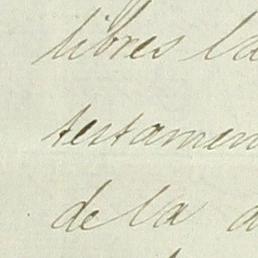 libres la
testamen
de la a